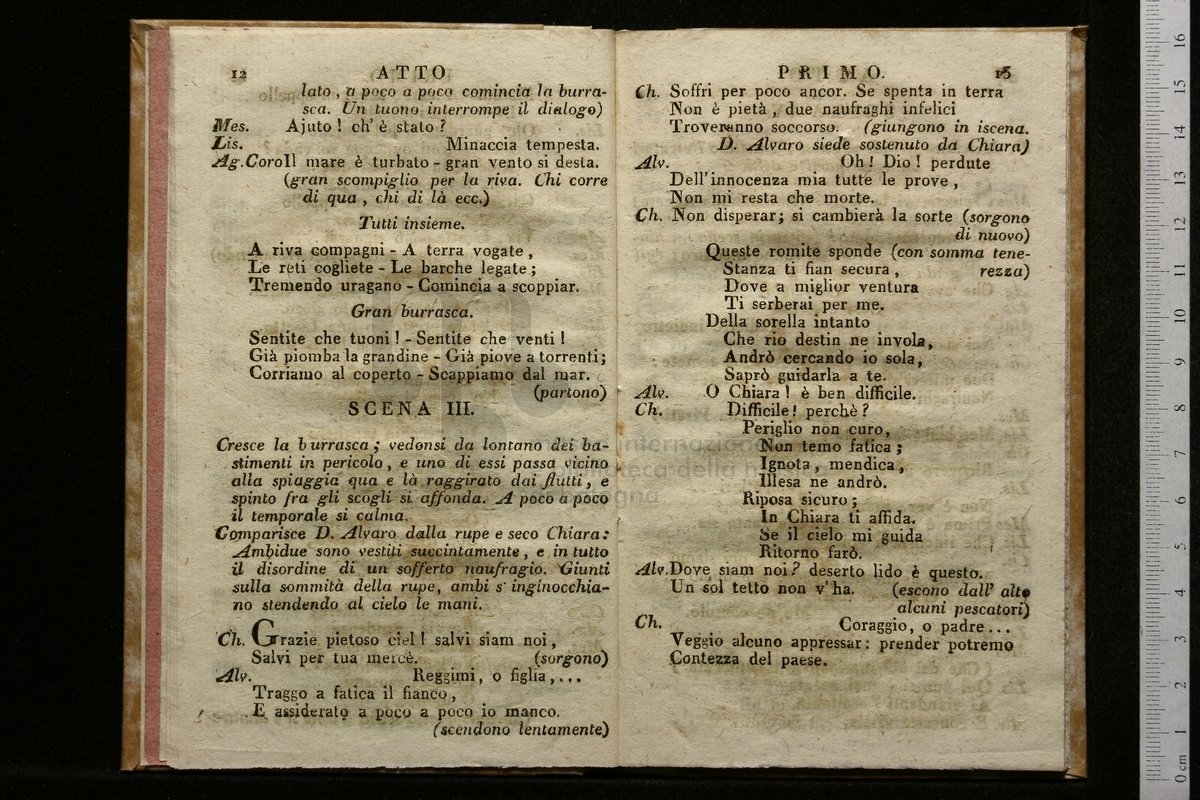 12 ATTO
lato, a poco a poco comincia la burra-
sca. Un tuono interrompe il dialogo)
Mes. Ajuto! ch' è stato?
Lis. Minaccia tempesta.
Ag. Coro Il mare è turbato - gran vento si desta.
(gran scompiglio per la riva. Chi corre
di qua, chi di là ecc.)
Tutti insieme.
A riva compagni - A terra vogate,
Le reti cogliete - Le barche legate;
Tremendo uragano - Comincia a scoppiar.
Gran burrasca.
Sentite che tuoni! - Sentite che venti!
Già piomba la grandine - Già piove a torrenti;
Corriamo al coperto - Scappiamo dal mar.
(partono)
SCENA III.
Cresce la burrasca; vedonsi da lontano dei ba-
stimenti in pericolo, e uno di essi passa vicino
alla spiaggia qua e là raggirato dai flutti, e
spinto fra gli scogli si affonda. A poco a poco
il temporale si calma.
Comparisce D. Alvaro dalla rupe e seco Chiara:
Ambidue sono vestiti succintamente, e in tutto
il disordine di un sofferto naufragio. Giunti
sulla sommità della rupe, ambi s' inginocchia-
no stendendo al cielo le mani.
Ch. Grazie pietoso ciel! salvi siam noi,
Salvi per tua mercè. (sorgono)
Alv. Reggimi, o figlia,...
Traggo a fatica il fianco,
E assiderato a poco a poco io manco.
(scendono lentamente)
PRIMO. 13
Ch. Soffri per poco ancor. Se spenta in terra
Non è pietà, due naufraghi infelici
Troveranno soccorso. (giungono in iscena.
D. Alvaro siede sostenuto da Chiara)
Alv. Oh! Dio! perdute
Dell'innocenza mia tutte le prove,
Non mi resta che morte.
Ch. Non disperar; si cambierà la sorte (sorgono
di nuovo)
Queste romite sponde (con somma tene-
Stanza ti fian secura, rezza)
Dove a miglior ventura
Ti serberai per me.
Della sorella intanto
Che rio destin ne invola,
Andrò cercando io sola,
Saprò guidarla a te.
Alv. O Chiara! è ben difficile.
Ch. Difficile! perchè?
Periglio non curo,
Non temo fatica;
Ignota, mendica,
Illesa ne andrò.
Riposa sicuro;
In Chiara ti affida.
Se il cielo mi guida
Ritorno farò.
Alv. Dove siam noi? deserto lido è questo.
Un sol tetto non v'ha. (escono dall' alto
alcuni pescatori)
Ch. Coraggio, o padre...
Veggio alcuno appressar: prender potremo
Contezza del paese.
0 cm 1 2 3 4 5 6 7 8 9 10 11 12 13 14 15 16